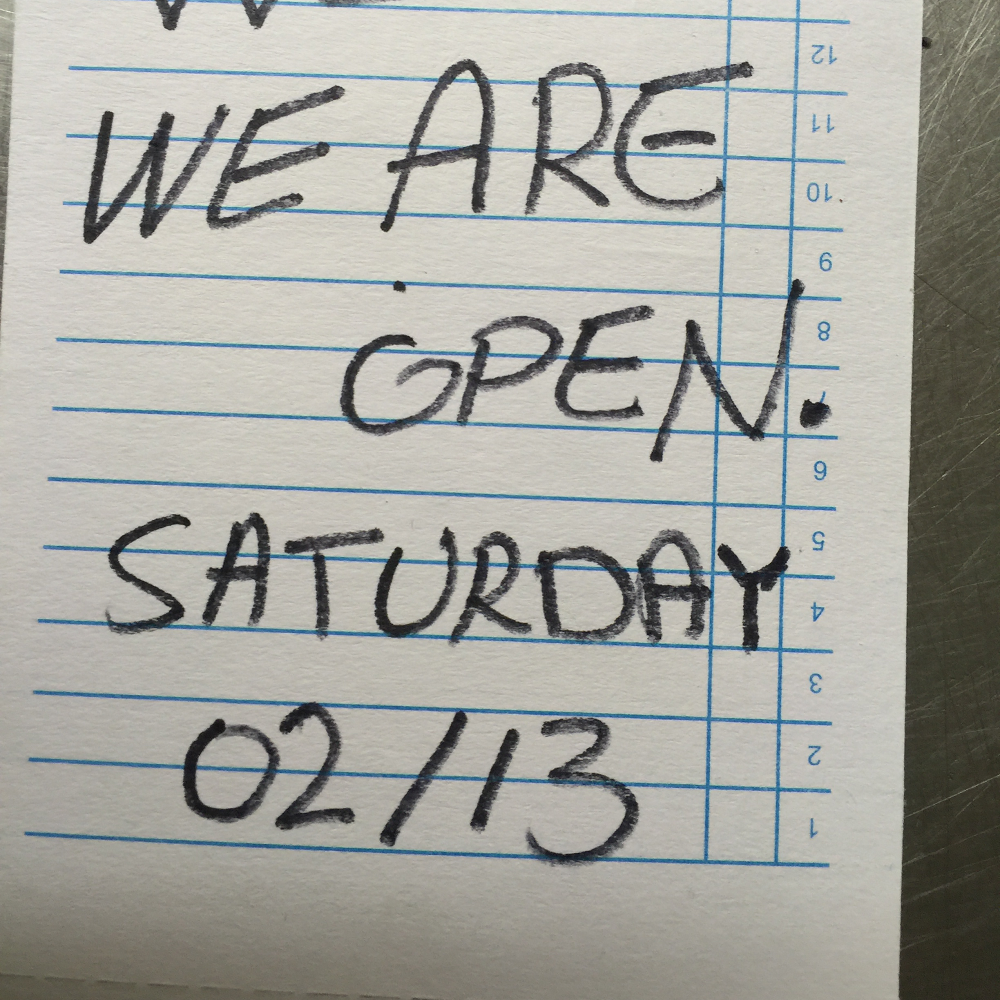 WE ARE
OPEN.
SATURDAY
02/13
12
11
10
9
8
7
6
5
4
3
2
1